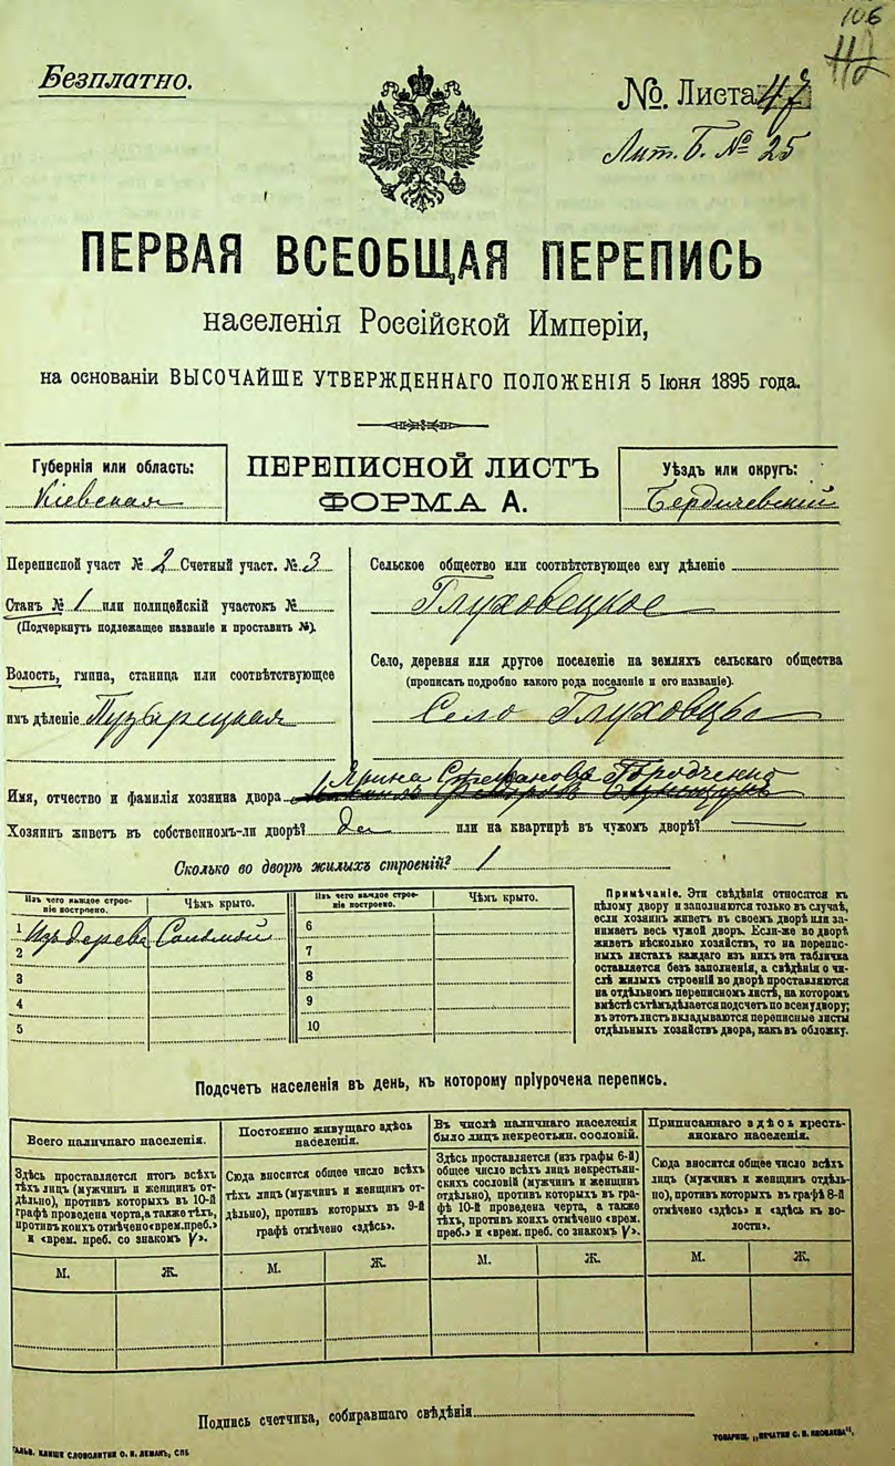 106
112
Безплатно.
№. Листа 47
Лит. Б. № 25
ПЕРВАЯ ВСЕОБЩАЯ ПЕРЕПИСЬ
населенія Россійской Имперіи,
на основаніи ВЫСОЧАЙШЕ УТВЕРЖДЕННАГО ПОЛОЖЕНІЯ 5 Іюня 1895 года.
Губернія или область:
Кіевская
ПЕРЕПИСНОЙ ЛИСТЪ
ФОРМА А.
Уѣздъ или округъ:
Бердичевскій
Переписной участ № 2 Счетный участ. № 3
Станъ № 1 или полицейскій участокъ №
(Подчеркнуть подлежащее названіе и проставить №).
Волость, гмина, станица или соотвѣтствующее
имъ дѣленіе Пузырецкая
Сельское общество или соотвѣтствующее ему дѣленіе
Глуховецкое
Село, деревня или другое поселеніе на земляхъ сельскаго общества
(прописать подробно какого рода поселеніе и его названіе).
Село Глуховцы
Имя, отчество и фамилія хозяина двора Ярина Стефанова Городченко
Хозяинъ живетъ въ собственномъ-ли дворѣ? да или на квартирѣ въ чужомъ дворѣ?
Сколько во дворѣ жилыхъ строеній? 1
Изъ чего каждое строе-
ніе построено.
Чѣмъ крыто.
Изъ чего каждое строе-
ніе построено.
Чѣмъ крыто.
1 Изъ дерева Соломой
2
3
4
5
6
7
8
9
10
Примѣчаніе. Эти свѣдѣнія относятся къ
цѣлому двору и заполняются только въ случаѣ,
если хозяинъ живетъ въ своемъ дворѣ или за-
нимаетъ весь чужой дворъ. Если-же во дворѣ
живетъ нѣсколько хозяйствъ, то на перепис-
ныхъ листахъ каждаго изъ нихъ эта табличка
оставляется безъ заполненія, а свѣдѣнія о чи-
слѣ жилыхъ строеній во дворѣ проставляются
на отдѣльномъ переписномъ листѣ, на которомъ
вмѣстѣ съ тѣмъ дѣлается подсчетъ по всему двору;
въ этотъ листъ вкладываются переписные листы
отдѣльныхъ хозяйствъ двора, какъ въ обложку.
Подсчетъ населенія въ день, къ которому пріурочена перепись.
Всего наличнаго населенія.
Здѣсь проставляется итогъ всѣхъ
тѣхъ лицъ (мужчинъ и женщинъ от-
дѣльно), противъ которыхъ въ 10-й
графѣ проведена черта, а также тѣхъ,
противъ коихъ отмѣчено «врем. преб.»
и «врем. преб. со знакомъ V».
М. Ж.
Постоянно живущаго здѣсь
населенія.
Сюда вносится общее число всѣхъ
тѣхъ лицъ (мужчинъ и женщинъ от-
дѣльно), противъ которыхъ въ 9-й
графѣ отмѣчено «здѣсь».
М. Ж.
Въ числѣ наличнаго населенія
было лицъ некрестьян. сословій.
Здѣсь проставляется (изъ графы 6-й)
общее число всѣхъ лицъ некрестьян-
скихъ сословій (мужчинъ и женщинъ
отдѣльно), противъ которыхъ въ гра-
фѣ 10-й проведена черта, а также
тѣхъ, противъ коихъ отмѣчено «врем.
преб.» и «врем. преб. со знакомъ V».
М. Ж.
Приписаннаго здѣсь кресть-
янскаго населенія.
Сюда вносится общее число всѣхъ
лицъ (мужчинъ и женщинъ отдѣль-
но), противъ которыхъ въ графѣ 8-й
отмѣчено «здѣсь» и «здѣсь къ во-
лости».
М. Ж.
Подпись счетчика, собиравшаго свѣдѣнія
ГАЛЬВ. КЛИШЕ СЛОВОЛИТНИ О. И. ЛЕМАНЪ, СПБ
ТОВАРИЩ. „ПЕЧАТНЯ С. П. ЯКОВЛЕВА“.